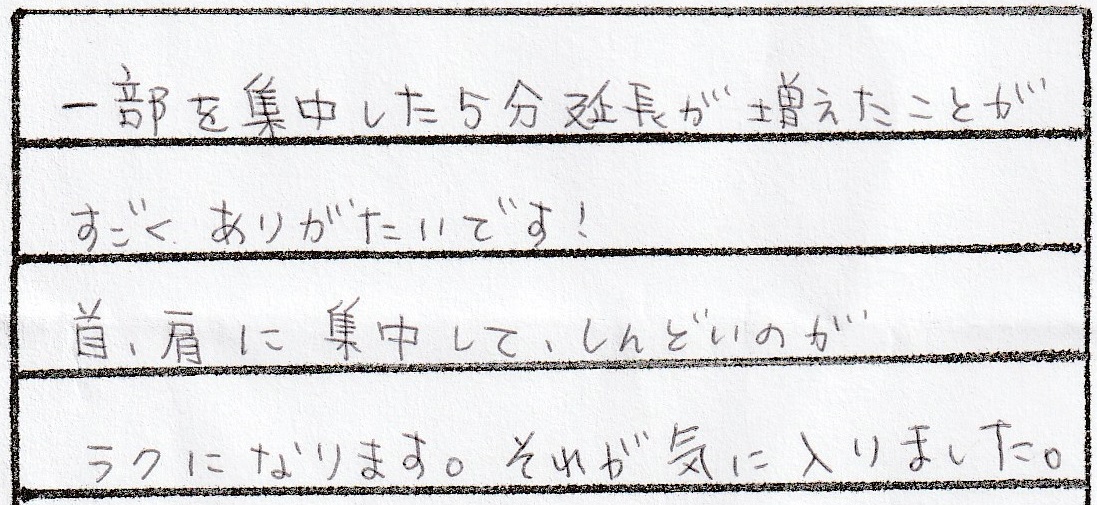 一部を集中した5分延長が増えたことが
すごくありがたいです!
首、肩に集中して、しんどいのが
ラクになります。それが気に入りました。